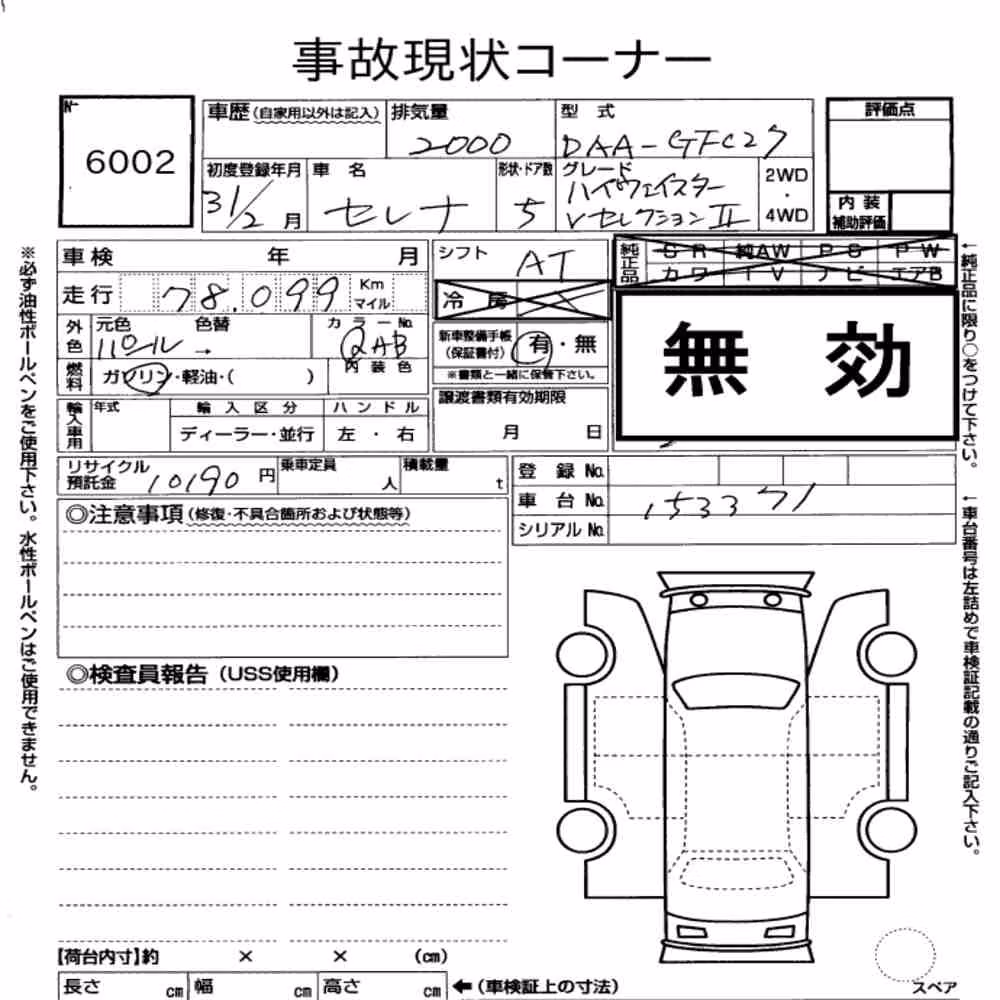 事故現状コーナー
No.
6002
車歴(自家用以外は記入)
排気量
2000
型 式
DAA-GFC27
評価点
初度登録年月
31/2 月
車 名
セレナ
形状・ドア数
5
グレード
ハイウェイスター
Vセレクション II
2WD
・
4WD
内 装
補助評価
車検 年 月
シフト
AT
純正品
S R 純AW P S P W
カワ T V ナビ エアB
走行 78,099 Km マイル
冷 房
外色 元色 パール → 色替
カラーNo.
QAB
新車整備手帳
(保証書付)
有・無
※書類と一緒に保管下さい。
無 効
燃料 ガソリン・軽油・( )
内装色
譲渡書類有効期限
月 日
輸入車用 年式 輸入区分 ハンドル
ディーラー・並行 左・右
リサイクル
預託金 10190 円
乗車定員 人
積載量 t
登 録 No.
車 台 No. 153371
シリアル No.
◎注意事項(修復・不具合箇所および状態等)
◎検査員報告(USS使用欄)
【荷台内寸】約 × × (cm)
長さ cm 幅 cm 高さ cm
←(車検証上の寸法)
スペア
※必ず油性ボールペンをご使用下さい。水性ボールペンはご使用できません。
←純正品に限り○をつけて下さい。
←車台番号は左詰めで車検証記載の通りご記入下さい。